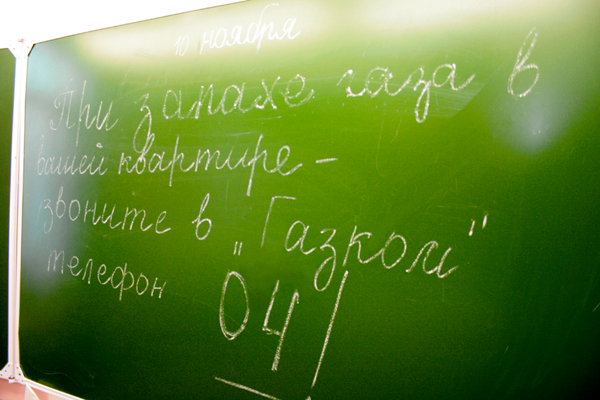 10 ноября
При запахе газа в
вашей квартире –
звоните в „Газком"
телефон 04!